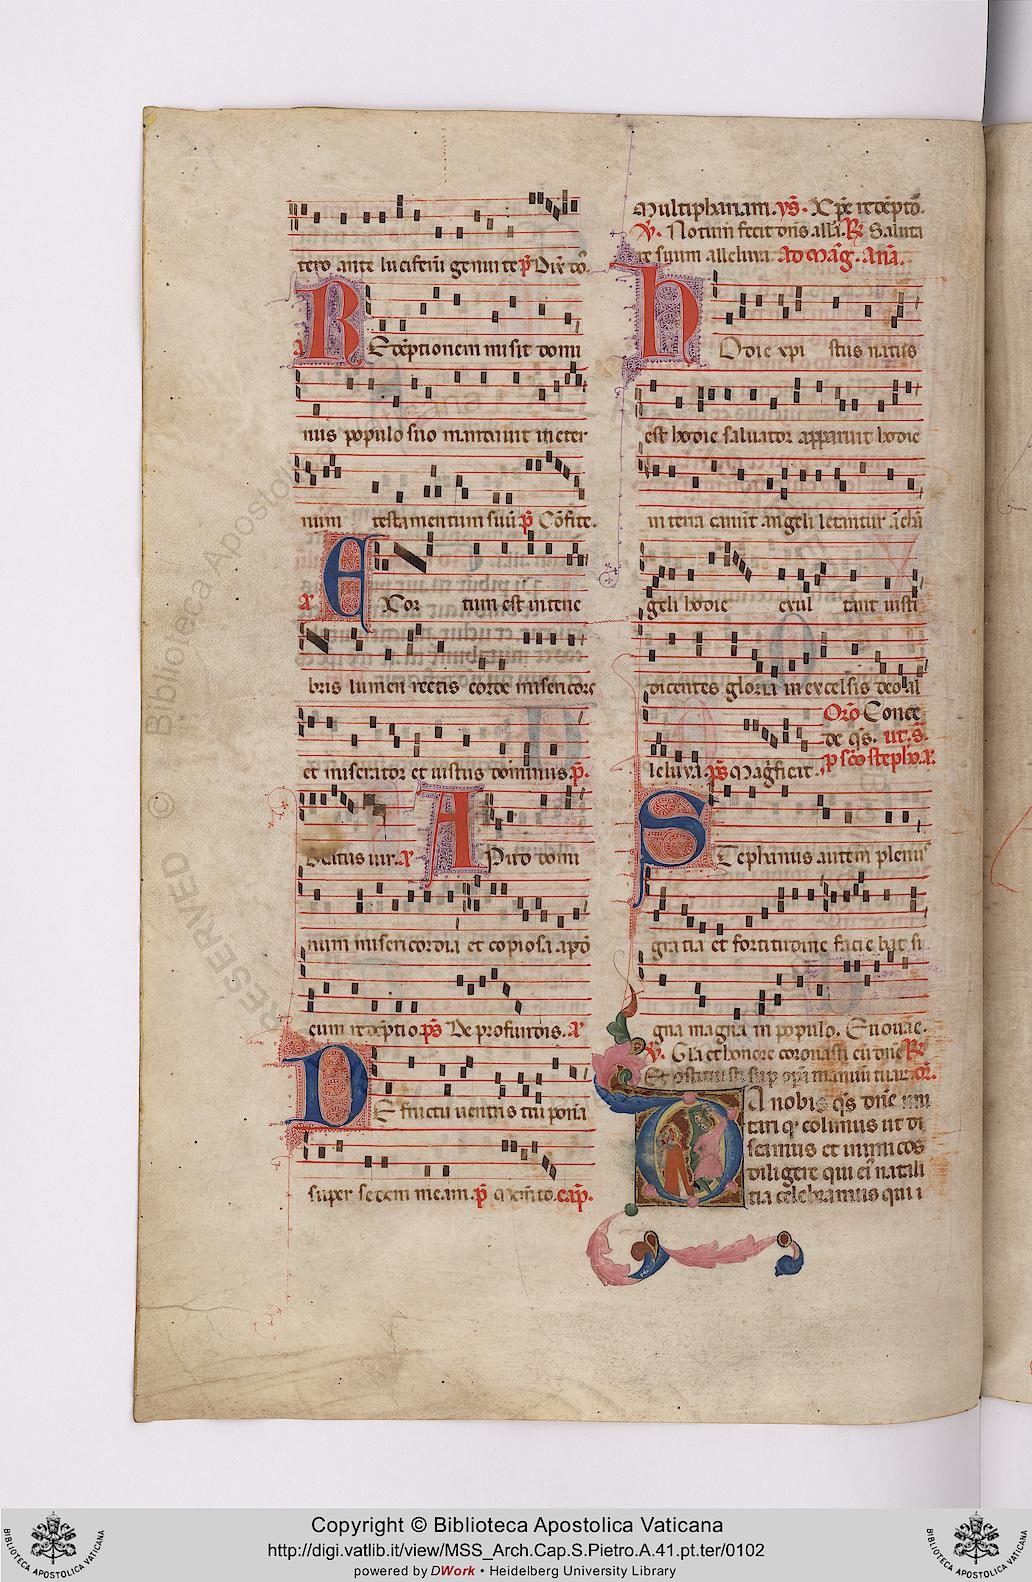 tero ante luciferū genui te p̄s Dix̄ tō.
Redēptionem misit domi
nus populo suo mandauit in eter
num testamentum suū p̄s Cōfite.
Exor tum est in tene
bris lumen rectis corde misericors
et miserator et iustus dominus. p̄s.
Beatus uir. A Apud domi
num misericordia et copiosa apd
eum redēptio p̄s De profundis. A
De fructu uentris tui ponā
super sedem meam. p̄s Mem̄to. cap̄.
Multiphariam. ys̄. Xp̄e redēpto.
V̄. Notum fecit dn̄s all̄a. R̄ Saluta
re suum alleluia Ad Māg. Anā.
Hodie xpi stus natus
est hodie saluator apparuit hodie
in terra canūt angeli letantur archā
geli hodie exul tant iusti
dicentes gloria in excelsis deo al
Orō Conce
de q̄s. ut. s̄.
leluya. p̄s Magnficat. p sc̄o stepho. A.
Stephanus autem plenus
gratia et fortitudine facie bat si
gna magna in populo. Euouae.
V̄. Gl̄a et honore coronasti eū dn̄e R̄
Et ostituisti eū sup op̄a manuū tuar. Or̄.
Da nobis q̄s dn̄e imi
tari qd colimus ut di
scamus et inimicos
diligere qui ei natali
tia celebramus qui i
© Biblioteca Apostolica
RESERVED
Copyright © Biblioteca Apostolica Vaticana
http://digi.vatlib.it/view/MSS_Arch.Cap.S.Pietro.A.41.pt.ter/0102
powered by DWork • Heidelberg University Library
BIBLIOTECA APOSTOLICA VATICANA
BIBLIOTECA APOSTOLICA VATICANA